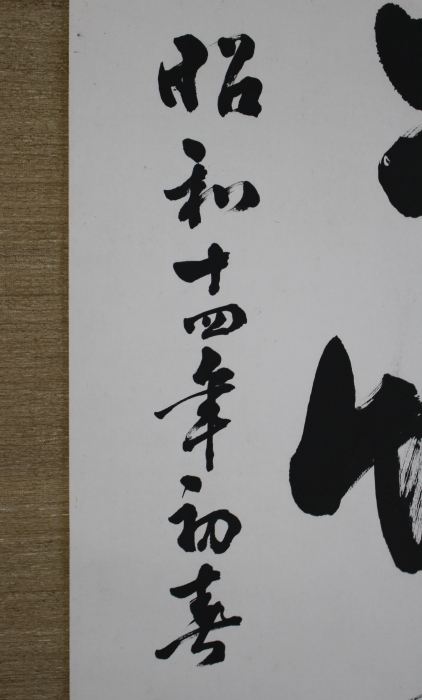 昭和十四年初春